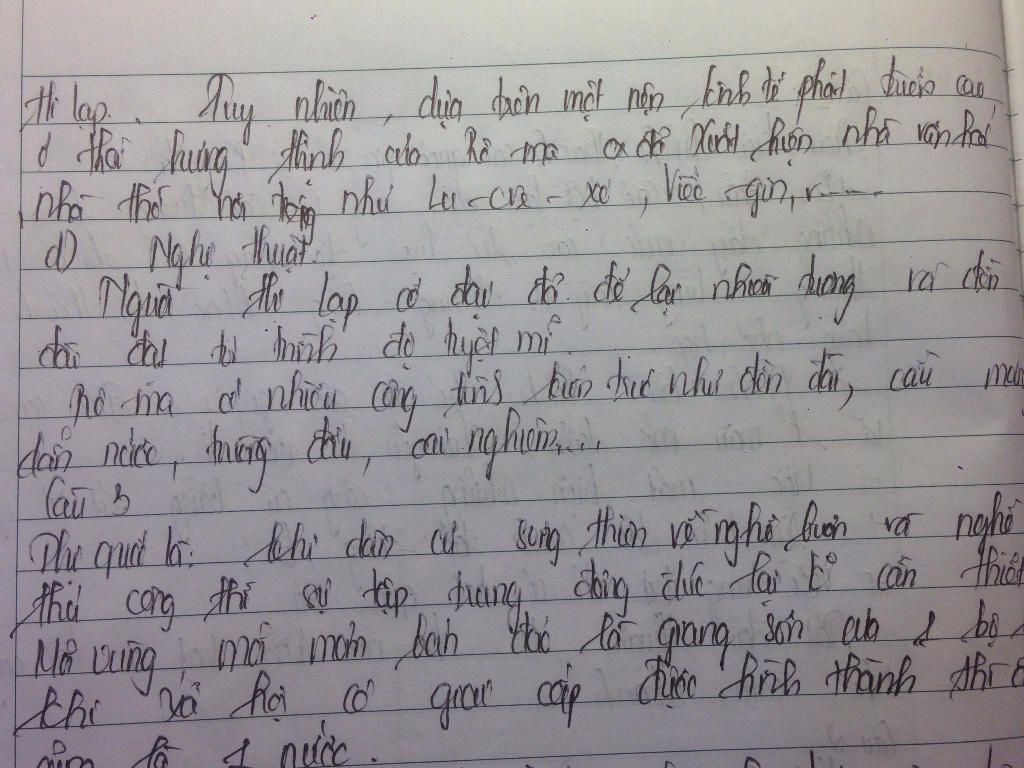 Hi lạp. Tuy nhiên, dựa trên một nền kinh tế phát triển cao,
ở thời hưng thịnh của Rô ma đã xuất hiện nhà văn hoá
nhà thơ nổi tiếng như Lu-cre-xơ, Viếc-gin,
d) Nghệ thuật
Người Hi lạp cổ đại đã để lại nhiều tượng và đền
đài đạt tới trình độ tuyệt mĩ
Rô-ma có nhiều công trình kiến trúc như đền đài, cầu máng
dẫn nước, trường đấu,
Câu 3
quả là: khi dân cư sống thiên về nghề buôn và nghề
thủ công thì sự tập trung đông đúc là cần thiết
Mỗi vùng, mỗi mỏm bán đảo là giang sơn của 1 bộ
khi xã hội có giai cấp được hình thành thì
là 1 nước.